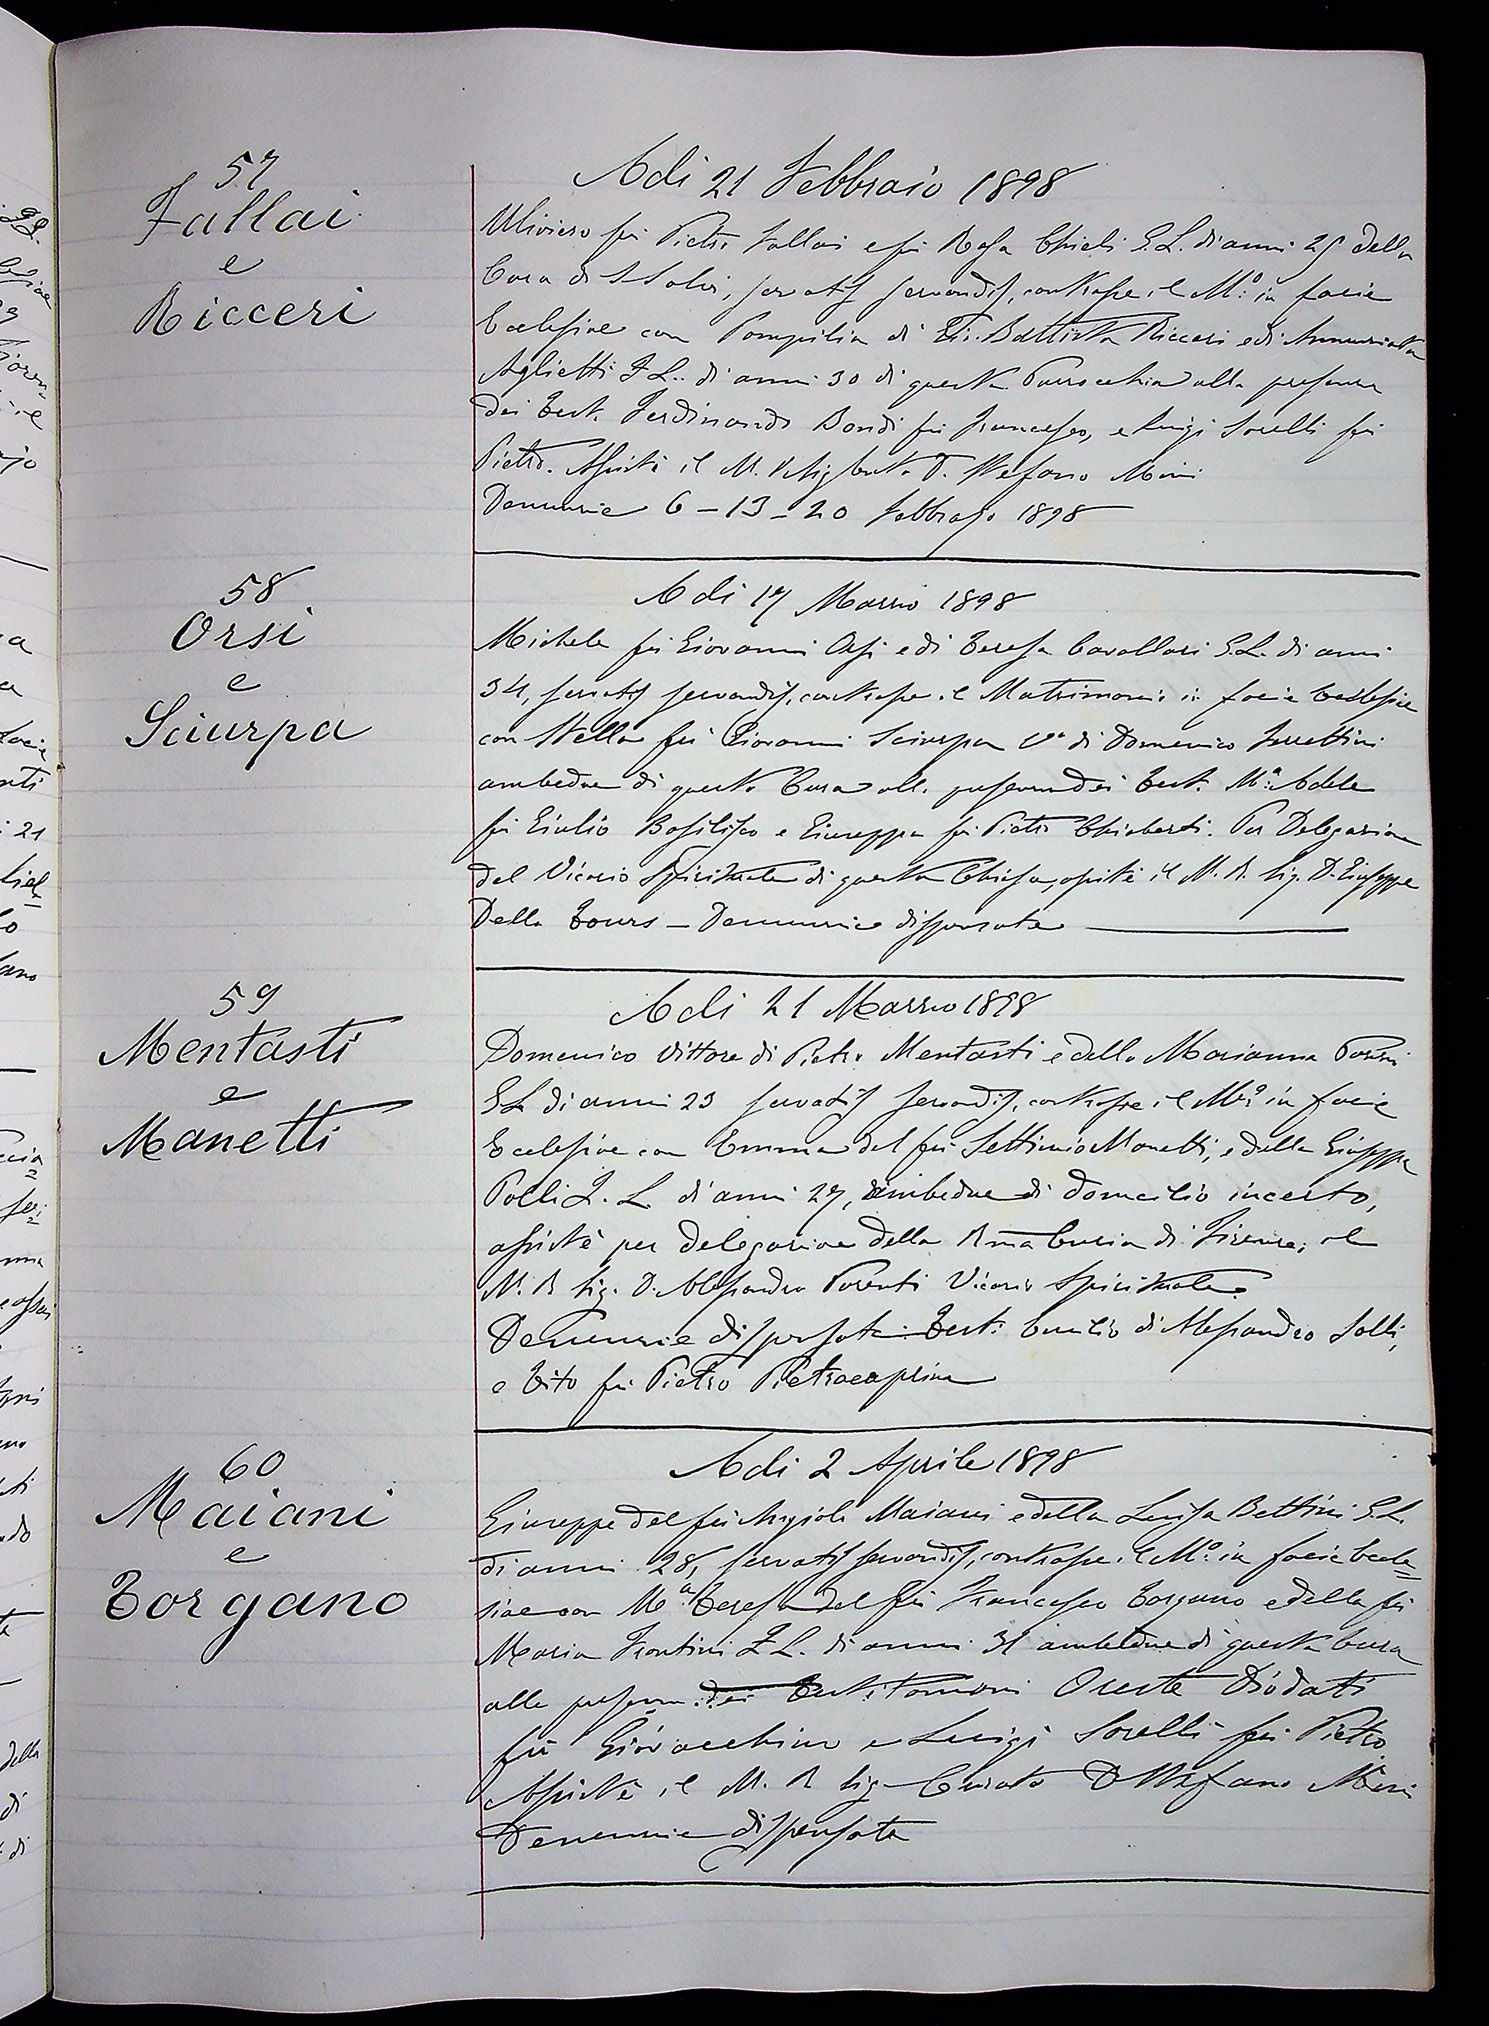 57
Fallai
e
Ricceri
Adi 21 Febbraio 1898
Uliviero fu Pietro Fallai e fu Rosa Chieli G.L. di anni 25 della
Cura di S Salvi, servatis servandis, contrasse il M.º in facie
Ecclesiae con Pompilia di Gio. Battista Ricceri e di Annunziata
Aglietti F L. di anni 30 di questa Parrocchia alla presenza
dei Test. Ferdinando Bondi fu Francesco, e Luigi Sorelli fu
Pietro. Assistè il M. R. Sig. Curato D. Stefano Mini
Denunzie 6 - 13 - 20 Febbrajo 1898
58
Orsi
e
Sciurpa
Adi 17 Marzo 1898
Michele fu Giovanni Orsi e di Teresa Cavallari G.L. di anni
34, servatis servandis, contrasse il Matrimonio in facie Ecclesiae
con Stella fu Giovanni Sciurpa V.ª di Domenico
ambedue di questa Cura alla presenza dei Test. M.ª Adele
fu Giulio Basilisco e Giuseppa fu Pietro Chioberti. Per Delegazione
del Vicario Spirituale di questa Chiesa, assistè il M. R. Sig. D. Giuseppe
Della Tours - Denunzie dispensate
59
Mentasti
e
Manetti
Adi 21 Marzo 1898
Domenico Vittore di Pietro Mentasti e della Marianna
G L di anni 23 servatis servandis, contrasse il M.º in facie
Ecclesiae con Emma del fu Settimio Manetti, e della Giuseppa
Polli F. L. di anni 27, ambedue di domicilio incerto,
assistè per delegazione della Rma Curia di Firenze, il
M. R Sig. D. Alessandro Parenti Vicario Spirituale.
Denunzie dispensate. Test: Emilio di Alessandro Salli,
e Vito fu Pietro Pietracaprina
60
Maiani
e
Torgano
Adi 2 Aprile 1898
Giuseppe del fu Angiolo Maiani e della Luisa Bettini G.L.
di anni 28, servatis servandis, contrasse il M.º in facie Eccle=
siae con M.ª Teresa del fu Francesco Torgano e della fu
Maria Frontini F L. di anni 31 ambedue di questa Cura
alla presenza dei Testimoni Oreste Diodati
fu Giovacchino e Luigi Sorelli fu Pietro
Assistè il M. R Sig Curato D Stefano Mini
Denunzie dispensate